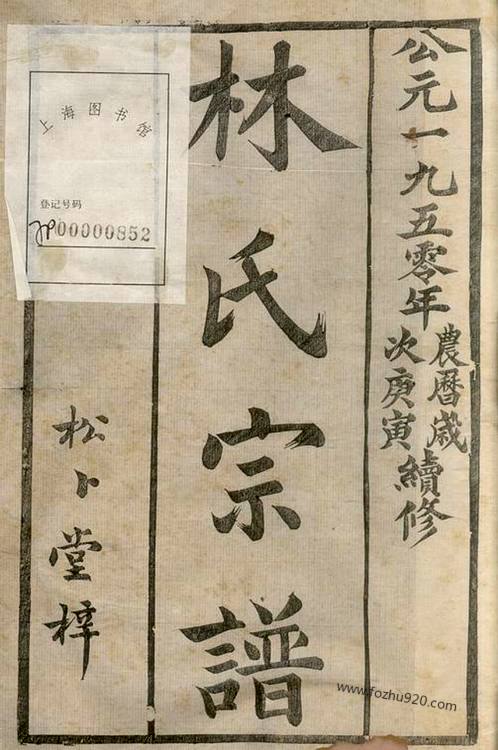 公元一九五零年農曆歲次庚寅續修
林氏宗譜
松卜堂梓
上海图书馆
登记号码
00000852
www.fozhu920.com